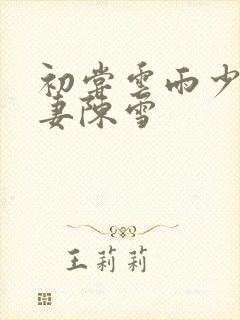 初尝雲雨少
妻陳雪
王莉莉